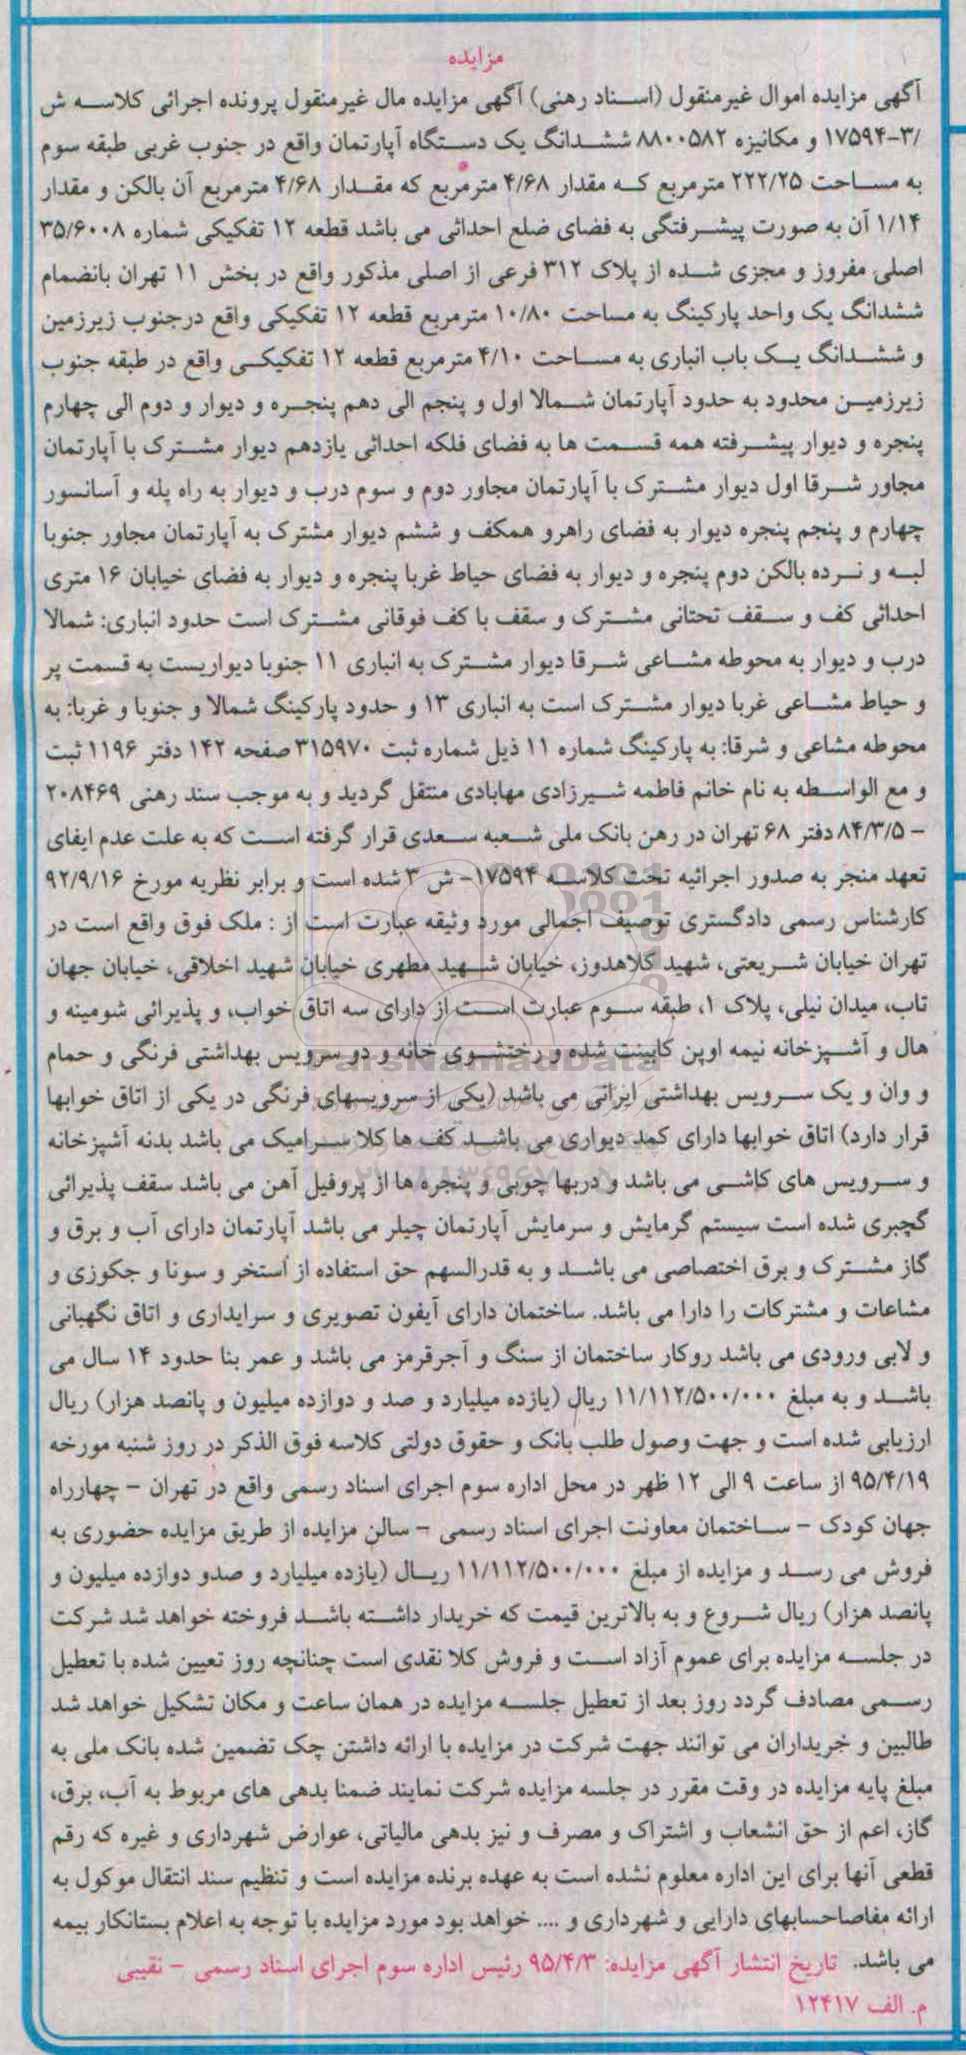 مزایده
آگهی مزایده اموال غیرمنقول (اسناد رهنی) آگهی مزایده مال غیرمنقول پرونده اجرائی کلاسه ش
/۳-۱۷۵۹۴ و مکانیزه ۸۸۰۰۵۸۲ ششدانگ یک دستگاه آپارتمان واقع در جنوب غربی طبقه سوم
به مساحت ۲۲۲/۲۵ مترمربع که مقدار ۴/۶۸ مترمربع که مقدار ۴/۶۸ مترمربع آن بالکن و مقدار
۱/۱۴ آن به صورت پیشرفتگی به فضای ضلع احداثی می باشد قطعه ۱۲ تفکیکی شماره ۳۵/۶۰۰۸
اصلی مفروز و مجزی شده از پلاک ۳۱۲ فرعی از اصلی مذکور واقع در بخش ۱۱ تهران بانضمام
ششدانگ یک واحد پارکینگ به مساحت ۱۰/۸۰ مترمربع قطعه ۱۲ تفکیکی واقع درجنوب زیرزمین
و ششدانگ یک باب انباری به مساحت ۴/۱۰ مترمربع قطعه ۱۲ تفکیکی واقع در طبقه جنوب
زیرزمین محدود به حدود آپارتمان شمالا اول و پنجم الی دهم پنجره و دیوار و دوم الی چهارم
پنجره و دیوار پیشرفته همه قسمت ها به فضای فلکه احداثی یازدهم دیوار مشترک با آپارتمان
مجاور شرقا اول دیوار مشترک با آپارتمان مجاور دوم و سوم درب و دیوار به راه پله و آسانسور
چهارم و پنجم پنجره دیوار به فضای راهرو همکف و ششم دیوار مشترک به آپارتمان مجاور جنوبا
لبه و نرده بالکن دوم پنجره و دیوار به فضای حیاط غربا پنجره و دیوار به فضای خیابان ۱۶ متری
احداثی کف و سقف تحتانی مشترک و سقف با کف فوقانی مشترک است حدود انباری: شمالا
درب و دیوار به محوطه مشاعی شرقا دیوار مشترک به انباری ۱۱ جنوبا دیواریست به قسمت پر
و حیاط مشاعی غربا دیوار مشترک است به انباری ۱۳ و حدود پارکینگ شمالا و جنوبا و غربا: به
محوطه مشاعی و شرقا: به پارکینگ شماره ۱۱ ذیل شماره ثبت ۳۱۵۹۷۰ صفحه ۱۴۲ دفتر ۱۱۹۶ ثبت
و مع الواسطه به نام خانم فاطمه شیرزادی مهابادی منتقل گردید و به موجب سند رهنی ۲۰۸۴۶۹
– ۸۴/۳/۵ دفتر ۶۸ تهران در رهن بانک ملی شعبه سعدی قرار گرفته است که به علت عدم ایفای
تعهد منجر به صدور اجرائیه تحت کلاسه ۱۷۵۹۴- ش ۳ شده است و برابر نظریه مورخ ۹۲/۹/۱۶
کارشناس رسمی دادگستری توصیف اجمالی مورد وثیقه عبارت است از : ملک فوق واقع است در
تهران خیابان شریعتی، شهید کلاهدوز، خیابان شهید مطهری خیابان شهید اخلاقی، خیابان جهان
تاب، میدان نیلی، پلاک ۱، طبقه سوم عبارت است از دارای سه اتاق خواب، و پذیرائی شومینه و
هال و آشپزخانه نیمه اوپن کابینت شده و رختشوی خانه و دو سرویس بهداشتی فرنگی و حمام
و وان و یک سرویس بهداشتی ایرانی می باشد (یکی از سرویسهای فرنگی در یکی از اتاق خوابها
قرار دارد) اتاق خوابها دارای کمد دیواری می باشد کف ها کلا سرامیک می باشد بدنه آشپزخانه
و سرویس های کاشی می باشد و دربها چوبی و پنجره ها از پروفیل آهن می باشد سقف پذیرائی
گچبری شده است سیستم گرمایش و سرمایش آپارتمان چیلر می باشد آپارتمان دارای آب و برق و
گاز مشترک و برق اختصاصی می باشد و به قدرالسهم حق استفاده از استخر و سونا و جکوزی و
مشاعات و مشترکات را دارا می باشد. ساختمان دارای آیفون تصویری و سرایداری و اتاق نگهبانی
و لابی ورودی می باشد روکار ساختمان از سنگ و آجرقرمز می باشد و عمر بنا حدود ۱۴ سال می
باشد و به مبلغ ۱۱/۱۱۲/۵۰۰/۰۰۰ ریال (یازده میلیارد و صد و دوازده میلیون و پانصد هزار) ریال
ارزیابی شده است و جهت وصول طلب بانک و حقوق دولتی کلاسه فوق الذکر در روز شنبه مورخه
۹۵/۴/۱۹ از ساعت ۹ الی ۱۲ ظهر در محل اداره سوم اجرای اسناد رسمی واقع در تهران – چهارراه
جهان کودک – ساختمان معاونت اجرای اسناد رسمی – سالن مزایده از طریق مزایده حضوری به
فروش می رسد و مزایده از مبلغ ۱۱/۱۱۲/۵۰۰/۰۰۰ ریال (یازده میلیارد و صدو دوازده میلیون و
پانصد هزار) ریال شروع و به بالاترین قیمت که خریدار داشته باشد فروخته خواهد شد شرکت
در جلسه مزایده برای عموم آزاد است و فروش کلا نقدی است چنانچه روز تعیین شده با تعطیل
رسمی مصادف گردد روز بعد از تعطیل جلسه مزایده در همان ساعت و مکان تشکیل خواهد شد
طالبین و خریداران می توانند جهت شرکت در مزایده با ارائه داشتن چک تضمین شده بانک ملی به
مبلغ پایه مزایده در وقت مقرر در جلسه مزایده شرکت نمایند ضمنا بدهی های مربوط به آب، برق،
گاز، اعم از حق انشعاب و اشتراک و مصرف و نیز بدهی مالیاتی، عوارض شهرداری و غیره که رقم
قطعی آنها برای این اداره معلوم نشده است به عهده برنده مزایده است و تنظیم سند انتقال موکول به
ارائه مفاصاحسابهای دارایی و شهرداری و .... خواهد بود مورد مزایده با توجه به اعلام بستانکار بیمه
می باشد. تاریخ انتشار آگهی مزایده: ۹۵/۴/۳ رئیس اداره سوم اجرای اسناد رسمی – نقیبی
م. الف ۱۲۴۱۷
ParsNamadData